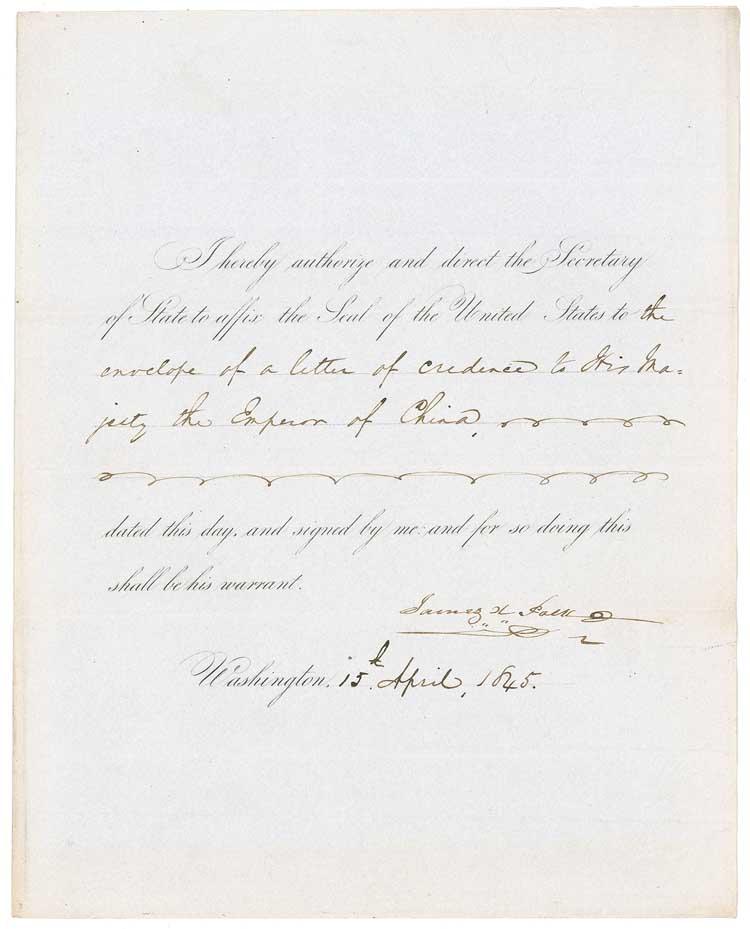 I hereby authorize and direct the Secretary
of State to affix the Seal of the United States to the
envelope of a letter of credence to His Ma=
jesty the Emperor of China,
dated this day, and signed by me: and for so doing this
shall be his warrant.
James K Polk
Washington, 15th April, 1845.